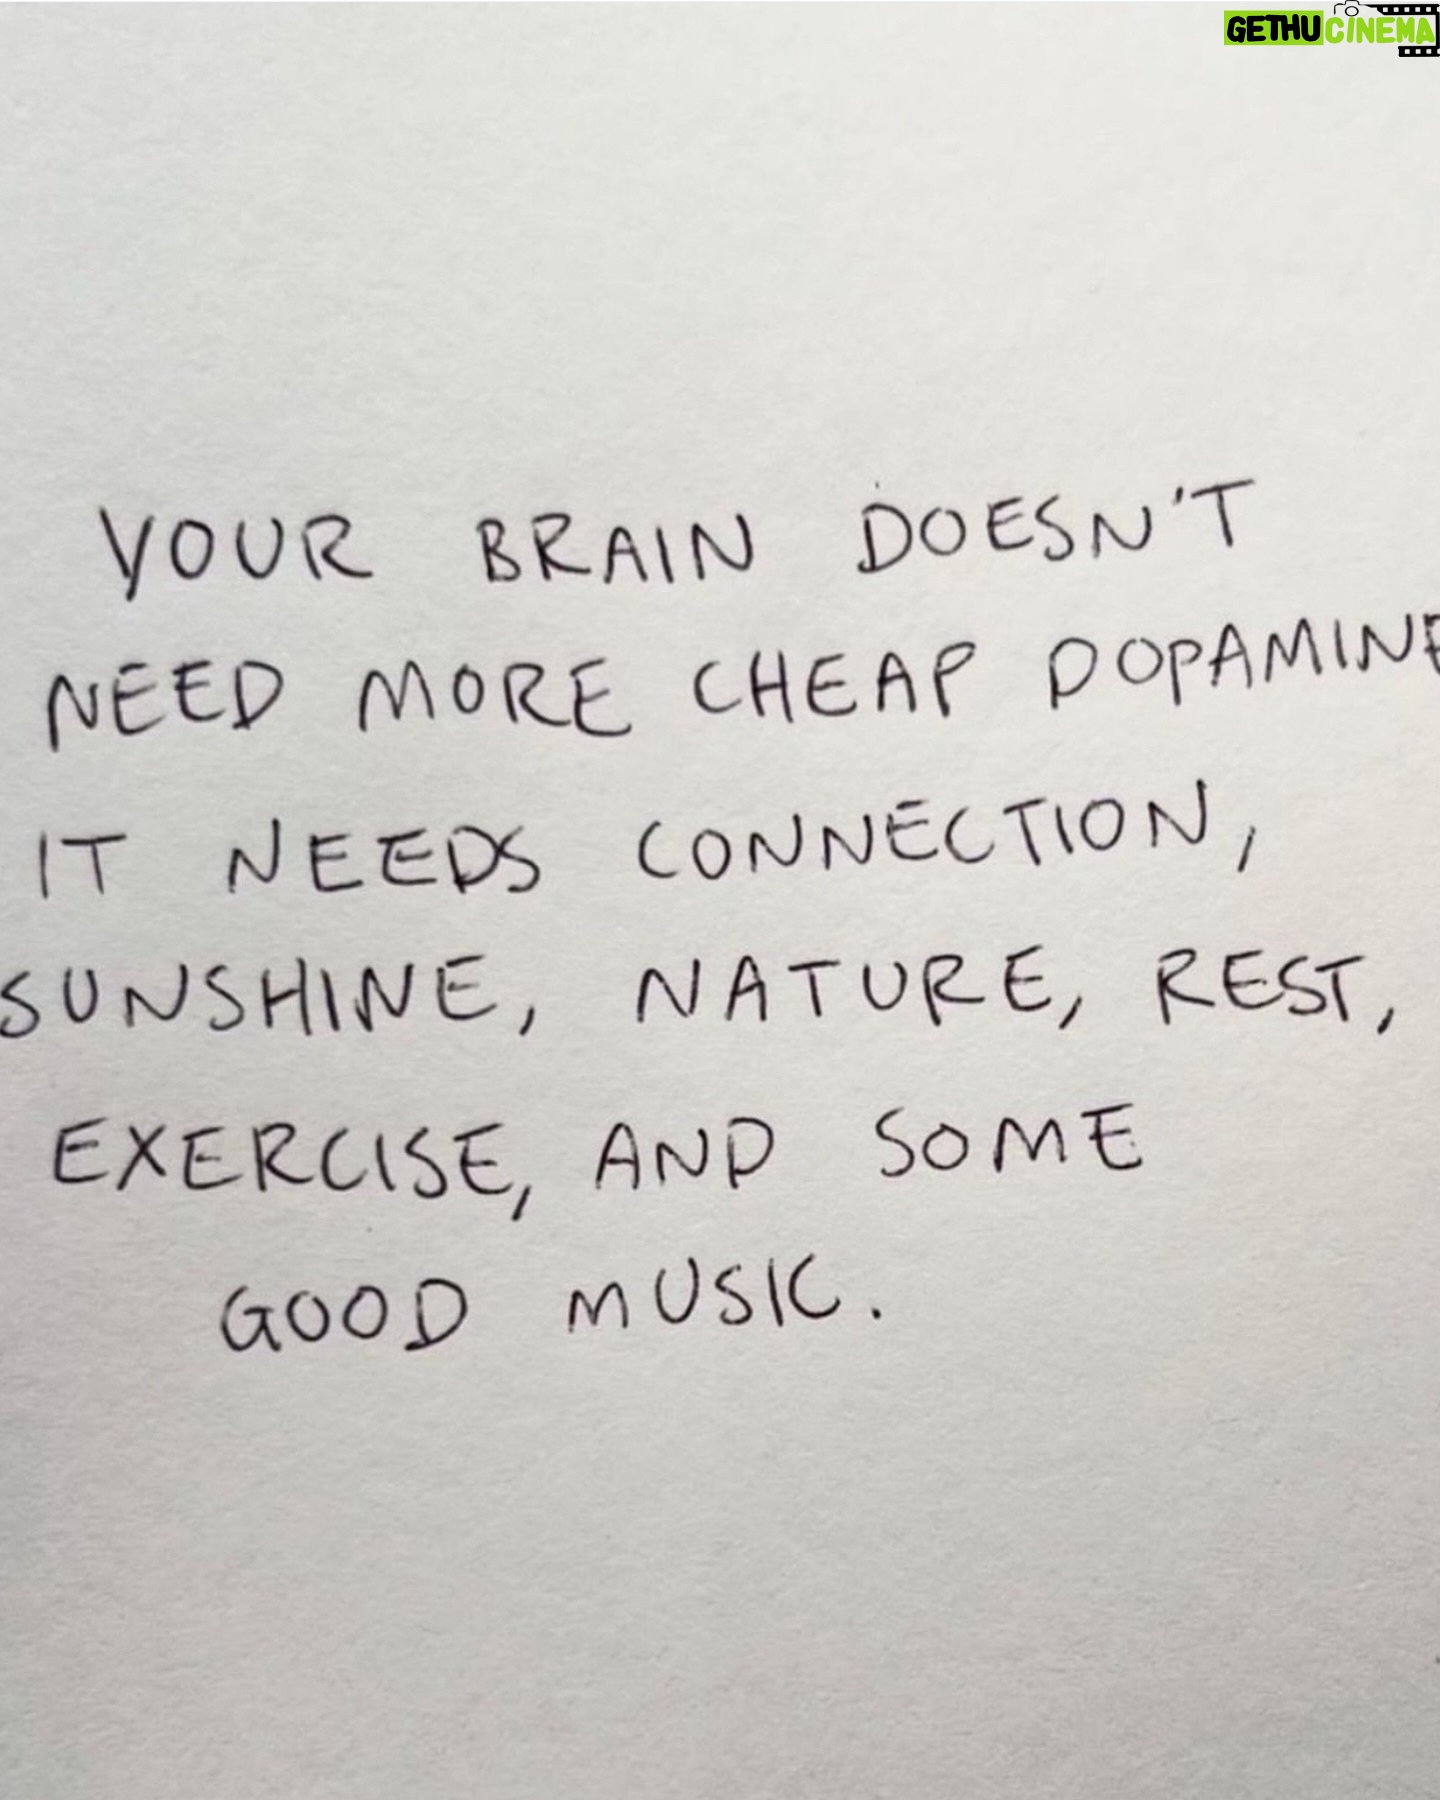 GETHUCINEMA
YOUR BRAIN DOESN'T
NEED MORE CHEAP DOPAMINE
IT NEEDS CONNECTION,
SUNSHINE, NATURE, REST,
EXERCISE, AND SOME
GOOD MUSIC.